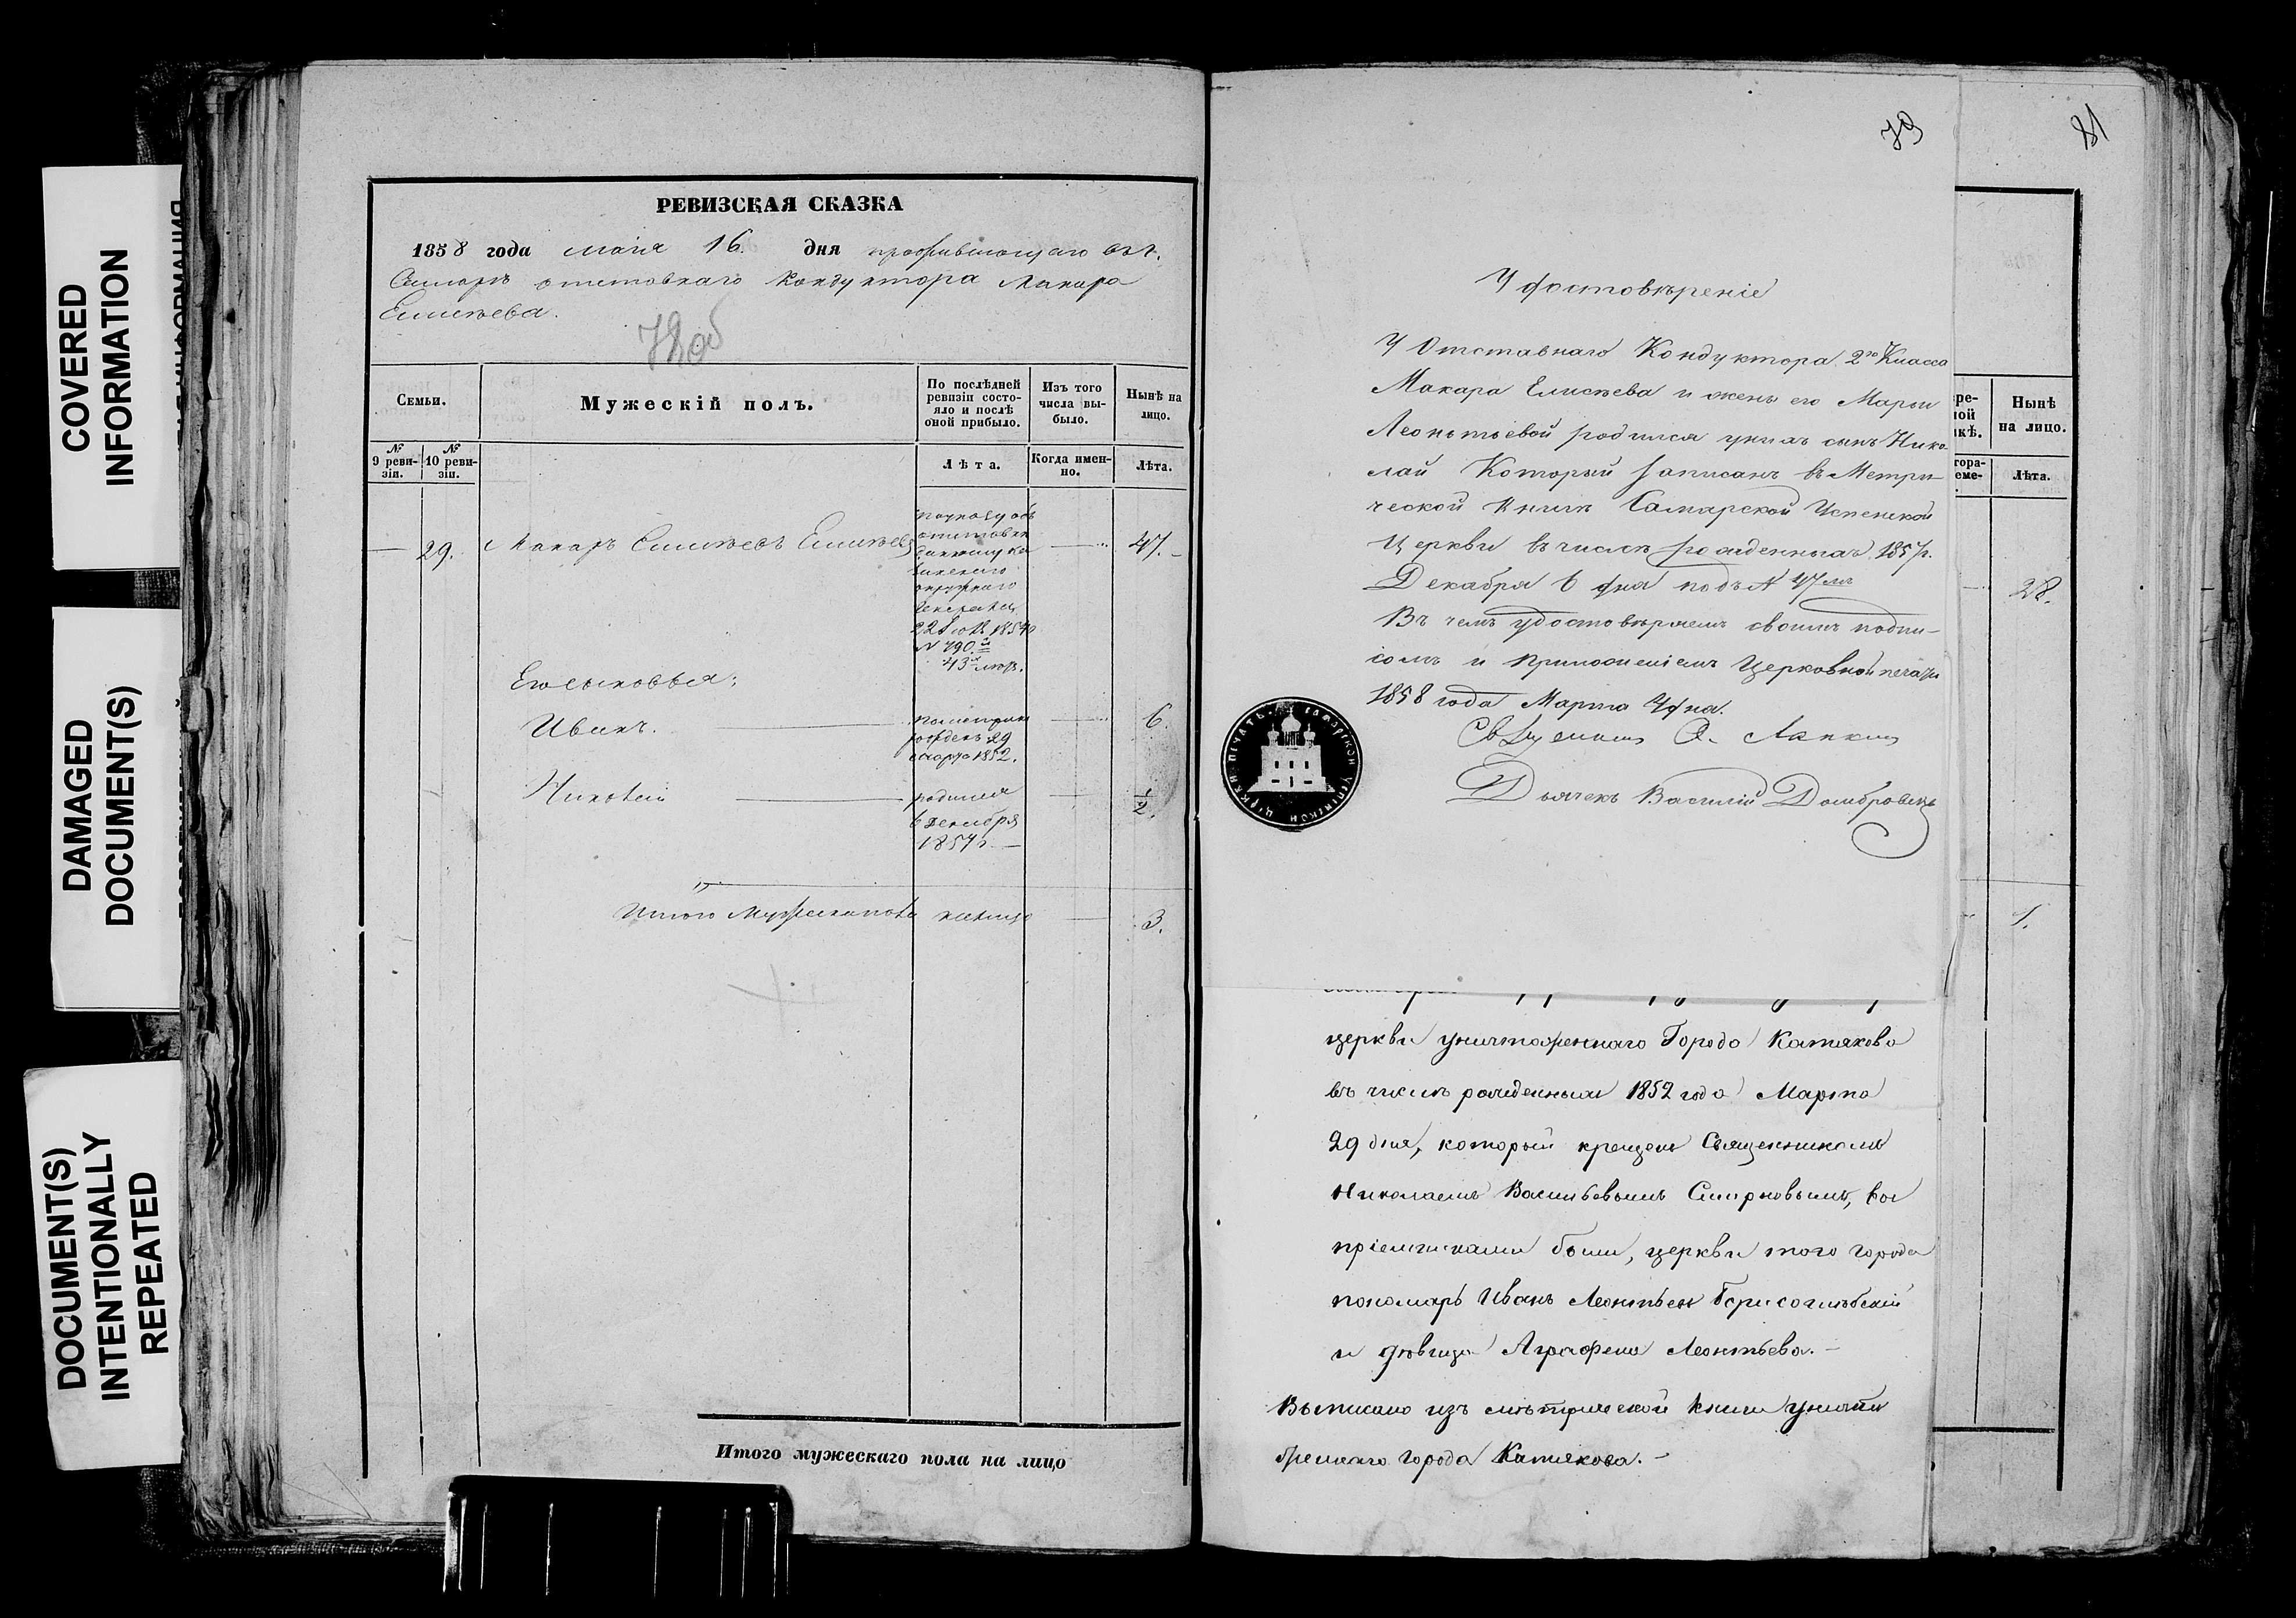 COVERED
INFORMATION
DAMAGED
DOCUMENT(S)
DOCUMENT(S)
INTENTIONALLY
REPEATED
РЕВИЗСКАЯ СКАЗКА
1858 года маія 16 дня проживающаго въ г.
Самарѣ отставнаго Кондуктора Макара
Елисѣева.
78об
Семьи.
Мужескій полъ.
По послѣдней
ревизіи состо-
яло и послѣ
оной прибыло.
Изъ того
числа вы-
было.
Нынѣ на
лицо.
№
9 реви-
зіи.
№
10 реви-
зіи.
Лѣта.
Когда имен-
но.
Лѣта.
29. Макаръ Елисѣевъ Елисѣевъ 47.
по указу объ
отставкѣ
22 1854
N 790
43
Его сыновья:
Иванъ. 6.
рожденъ 29
марта 1852.
Николай родился 1/2.
6 декабря
1857г.
Итого мужеска пола налицо 3.
Итого мужескаго пола на лицо
79
81
Удостовѣреніе
У Отставнаго Кондуктора 2го Класса
Макара Елисѣева и жены его Марьи
Леонтьевой родился у нихъ сынъ Нико-
лай Который записанъ въ Метри-
ческой Книгѣ Самарской Успенской
Церкви въ числѣ рожденныхъ 1857г.
Декабря 6 дня подъ № 47мъ
Въ чемъ удостовѣряемъ своимъ подпи-
сомъ и приложеніемъ Церковной печати
1858 года Марта 4 дня.
Священникъ Лапкинъ
Дьячекъ Василій Домбровскій
ПЕЧАТЬ САМАРСКОЙ УСПЕНСКОЙ ЦЕРКВИ
церкви уничтоженнаго Города Котякова
въ числѣ рожденныхъ 1852 года Марта
29 дня, который крещенъ Священникомъ
Николаемъ Васильевымъ Смирновымъ, вос
пріемниками были, церкви того города
пономарь Иванъ Леонтьевъ Борисоглѣбскій
и дѣвица Аграфена Леонтьева.-
Выписано изъ метрической книги уничто
женнаго города Котякова.-
ре-
ной
кѣ.
Нынѣ
на лицо.
тора-
еме-
Лѣта.
28.
1.